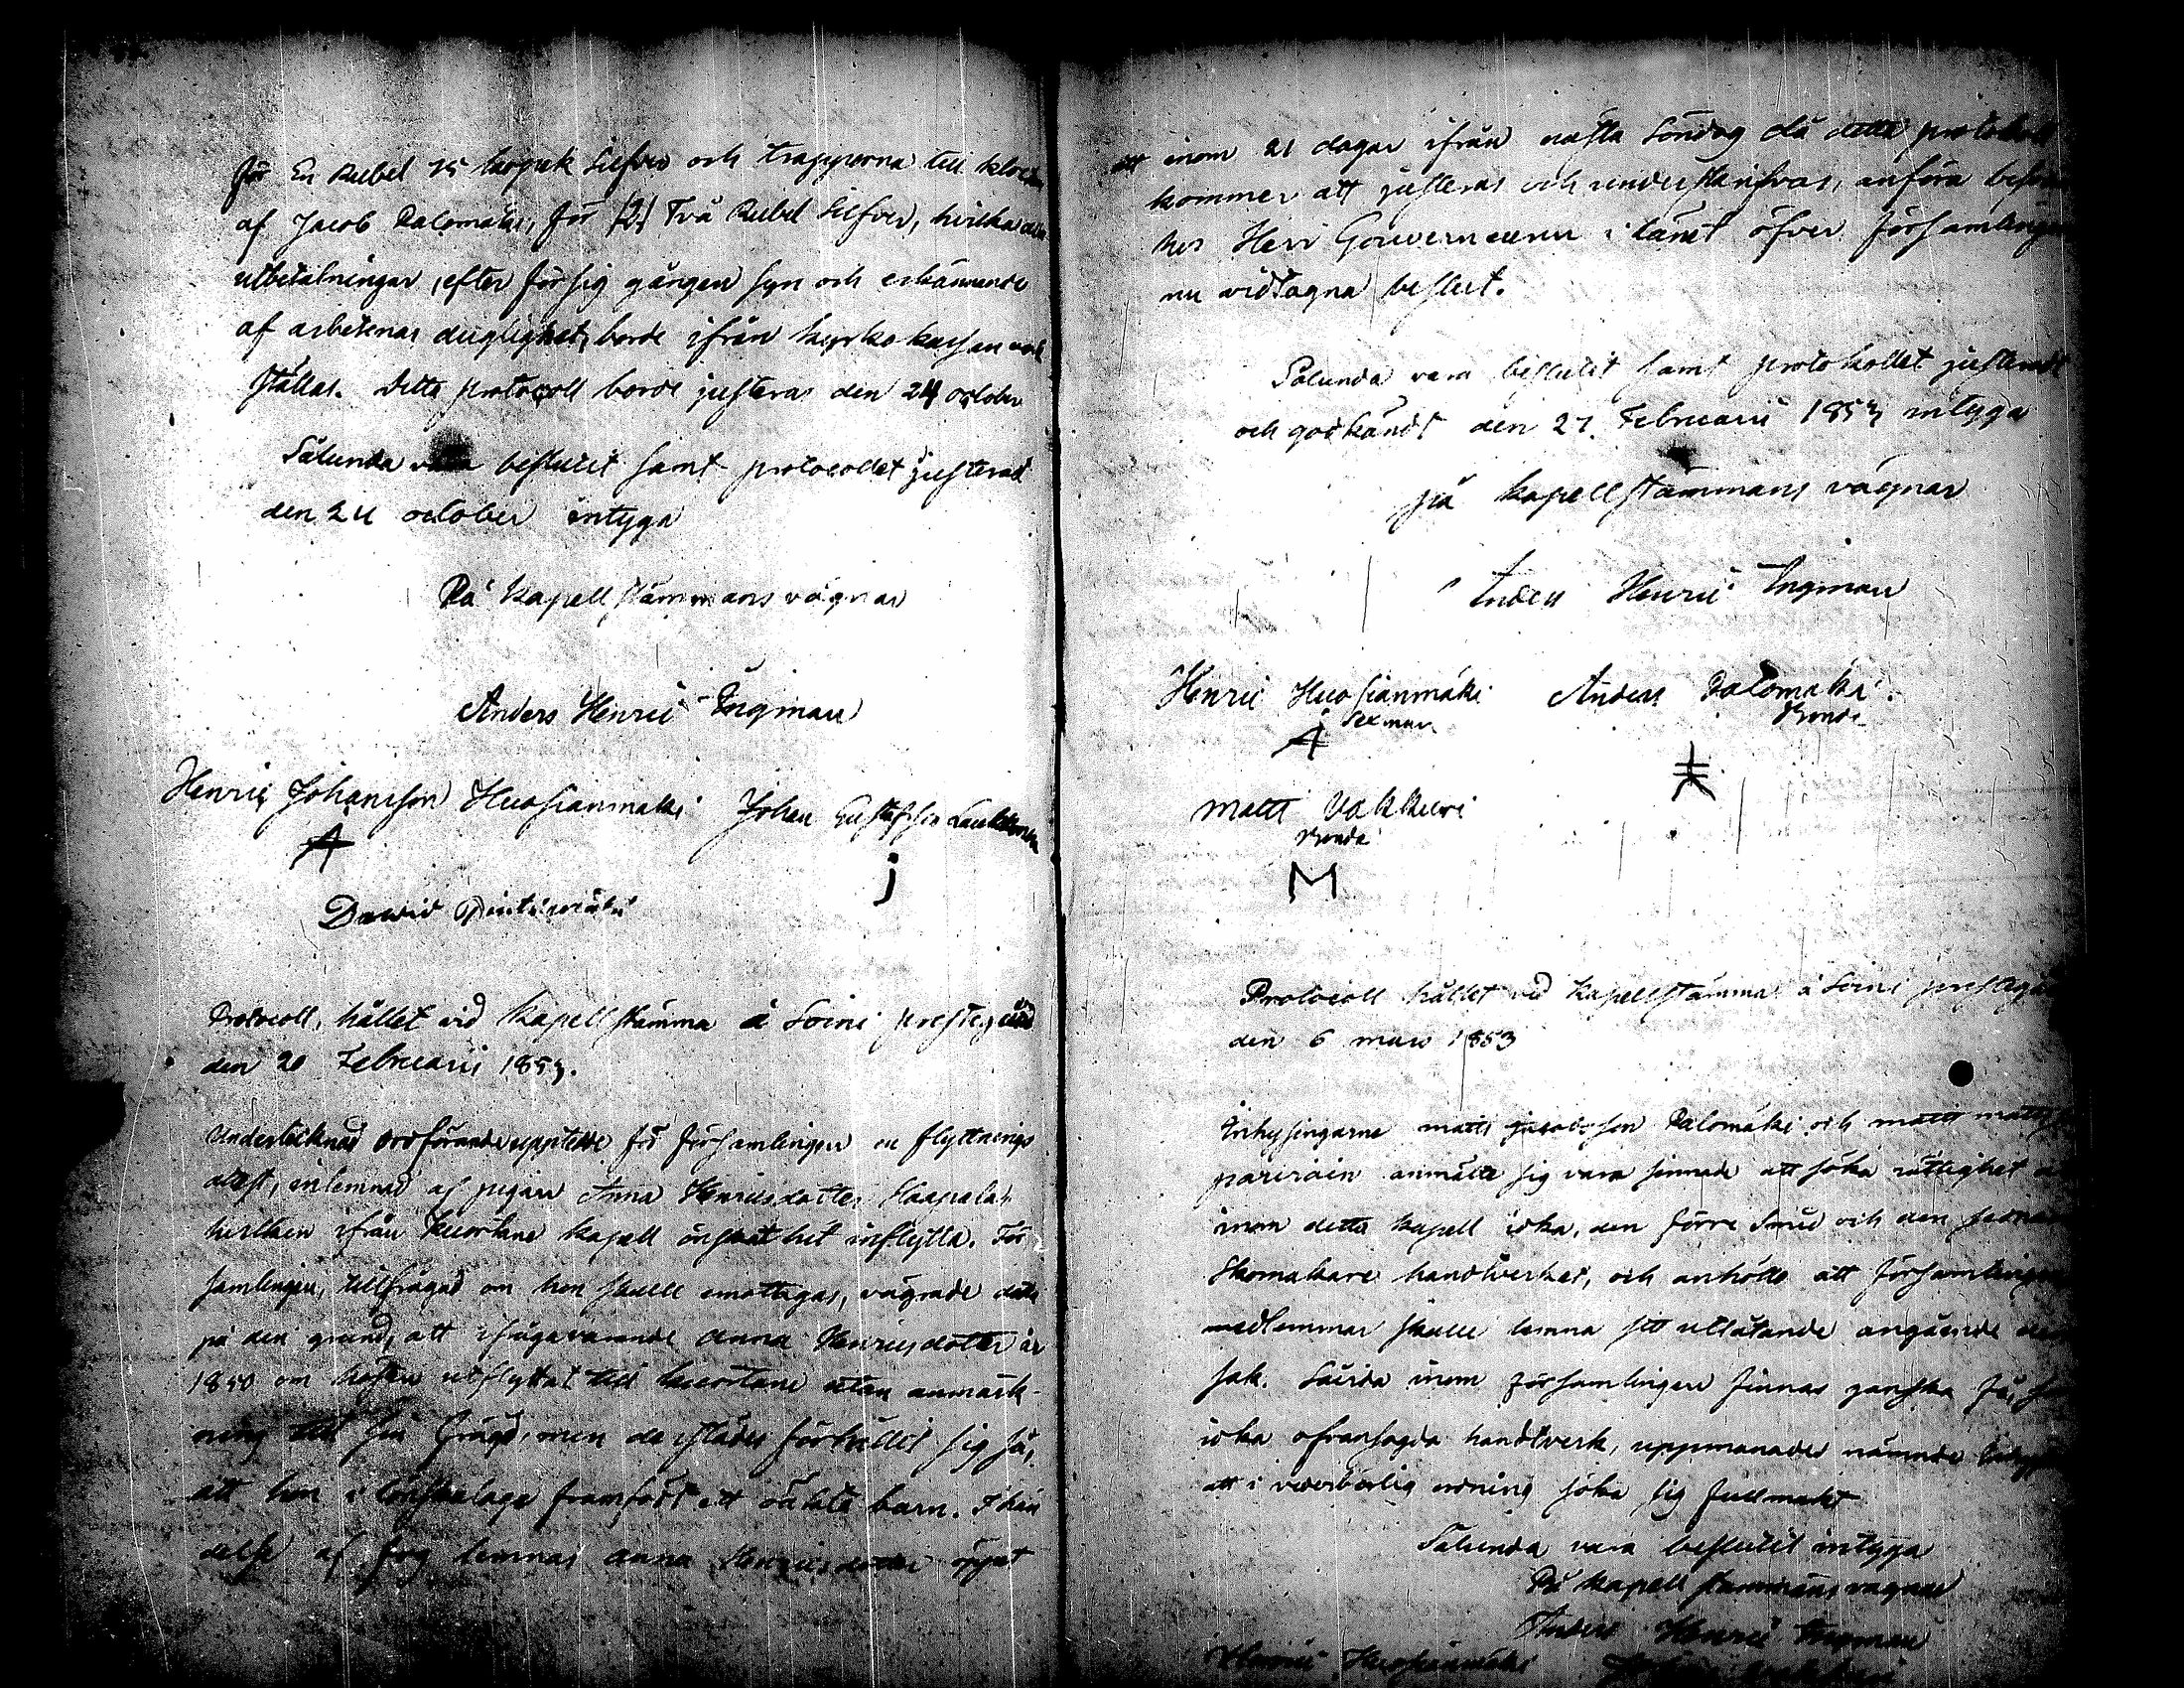 för En Rubel 75 kopek Silfver och trapporna till klockn
af Jacob Palomäki, för (2) Två Rubel Silfver, hvilka alla
utbetalningar, efter försig gången syn och erkännande
af arbetenas duglighet, borde ifrån kyrko kassan verk
ställas. Detta protocoll borde justeras den 24 october
Sålunda vara beslutit samt protocollet justerad
den 24 october intyga
På kapellstämmans vägnar
Anders Henric Ingman
Henric Johansson Huosianmäki Johan Gustafsson Laukkonen
A j
David Pentinmäki
Protocoll, hållet vid kapellstämma å Soini prestegård
den 20 Februarii 1853.
Undertecknad ordförande uppteedde för församlingen en flyttnings
attest, inlemnad af pigan Anna Henricsdotter Haapala
hvilken ifrån Kuortane kapell önskat hit inflytta. För
samlingen, tillfrågad om hon skulle emottagas, vägrade detta
på den grund, att ifrågavarande Anna Henricsdotter år
1850 om hösten utflyttat till Kuortane utan anmärk-
ning till sin frägd, men derstädes förhållit sig så,
att hon i lönskalage framfödt ett oäkta barn. I hän
delse af fog lemnas Anna Henricsdotter öppet
att inom 21 dagar ifrån nästa Söndag då detta protokoll
kommer att justeras och underskrifvas, anföra besvär
hos Herr Gouverneuren i länet öfver församlingens
nu vidtagna beslut.
Sålunda vara beslutit samt protokollet justeradt
och godkändt den 27. Februarii 1853 intyga
på kapellstämmans vägnar
Anders Henric Ingman
Henric Huosianmäki Anders Palomäki
Sexman Bonde
A
Matti Vakkuri
Bonde
M
Protocoll hållet vid kapellstämma å Soini prestegård
den 6 mars 1853
Inhysingarne Matts Jacobsson Palomäki och Matts Matts
anmälte sig vara sinnade att söka rättighet att
inom detta kapell idka, den förre Smed och den sednare
Skomakare handtverket, och anhöllo att församlingens
medlemmar skulle lemna sitt utlåtande angående denna
sak. Såsida inom församlingen finnas ganska få, som
idka ofvansagda handtverk, uppmanades nämnde
att i vederbörlig ordning söka sig fullmakt
Sålunda vara beslutit intyga
På kapellstämmans vägnar
Anders Henric Ingman
Henric Huosianmäki